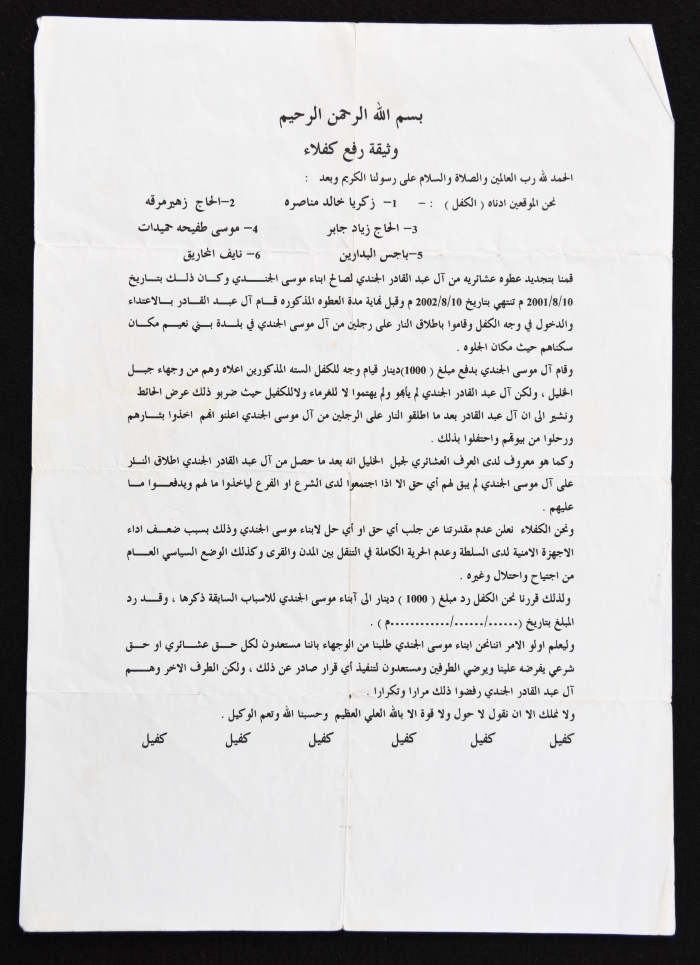 بسم الله الرحمن الرحيم
وثيقة رفع كفلاء
الحمد لله رب العالمين والصلاة والسلام على رسولنا الكريم وبعد :
نحن الموقعين ادناه ( الكفل ) : – 1– زكريا خالد مناصره 2–الحاج زهيرمرقه
3– الحاج زياد جابر 4– موسى طفيحه حميدات
5–باجس البدارين 6– نايف المخاريق
قمنا بتجديد عطوه عشائريه من آل عبد القادر الجندي لصالح ابناء موسى الجنـــدي وكـان ذلـــك بتـاريخ
2001/8/10 م تنتهي بتاريخ 2002/8/10 م وقبل نهاية مدة العطوه المذكوره قـــام آل عبـــد القـــادر بـالاعتداء
والدخول في وجه الكفل وقاموا باطلاق النار على رجلين من آل موسى الجندي في بلدة بـــني نعيـــم مكـــان
سكناهم حيث مكان الجلوه .
وقام آل موسى الجندي بدفع مبلغ ( 1000)دينار قيام وجه للكفل السته المذكورين اعلاه وهم من وجهاء جبـــل
الخليل ، ولكن آل عبد القادر الجندي لم يأبهو ولم يهتموا لا للغرماء ولاللكفيل حيث ضربو ذلك عرض الحائط
ونشير الى ان آل عبد القادر بعد ما اطلقو النار على الرجلين من آل موسى الجندي اعلنو انهم اخذوا بثـــارهم
ورحلوا من بيوتهم واحتفلوا بذلك .
وكما هو معروف لدى العرف العشائري لجبل الخليل انه بعد ما حصل من آل عبد القادر الجندي اطلاق النـــار
على آل موسى الجندي لم يبق لهم أي حق الا اذا اجتمعوا لدى الشرع او الفرع لياخذوا ما لهم ويدفعـــوا مـــا
عليهم .
ونحن الكفلاء نعلن عدم مقدرتنا عن جلب أي حق او أي حل لابناء موسى الجندي وذلك بسبب ضعـــف اداء
الاجهزة الامنية لدى السلطة وعدم الحرية الكاملة في التنقل بين المدن والقرى وكذلك الوضع السياسي العـــام
من اجتياح واحتلال وغيره .
ولذلك قررنا نحن الكفل رد مبلغ ( 1000 ) دينار الى آبناء موسى الجندي للاسباب السابقة ذكرها ، وقـــد رد
المبلغ بتاريخ (....../....../............م ) .
وليعلم اولو الامر اننانحن ابناء موسى الجندي طلبنا من الوجهاء باننا مستعدون لكل حـــق عشـــائري او حـــق
شرعي يفرضه علينا ويرضي الطرفين ومستعدون لتنفيذ أي قرار صادر عن ذلك ، ولكن الطرف الاخر وهـــم
آل عبد القادر الجندي رفضوا ذلك مرارا وتكرارا .
ولا نملك الا ان نقول لا حول ولا قوة الا بالله العلي العظيم وحسبنا الله ونعم الوكيل .
كفيل كفيل كفيل كفيل كفيل كفيل